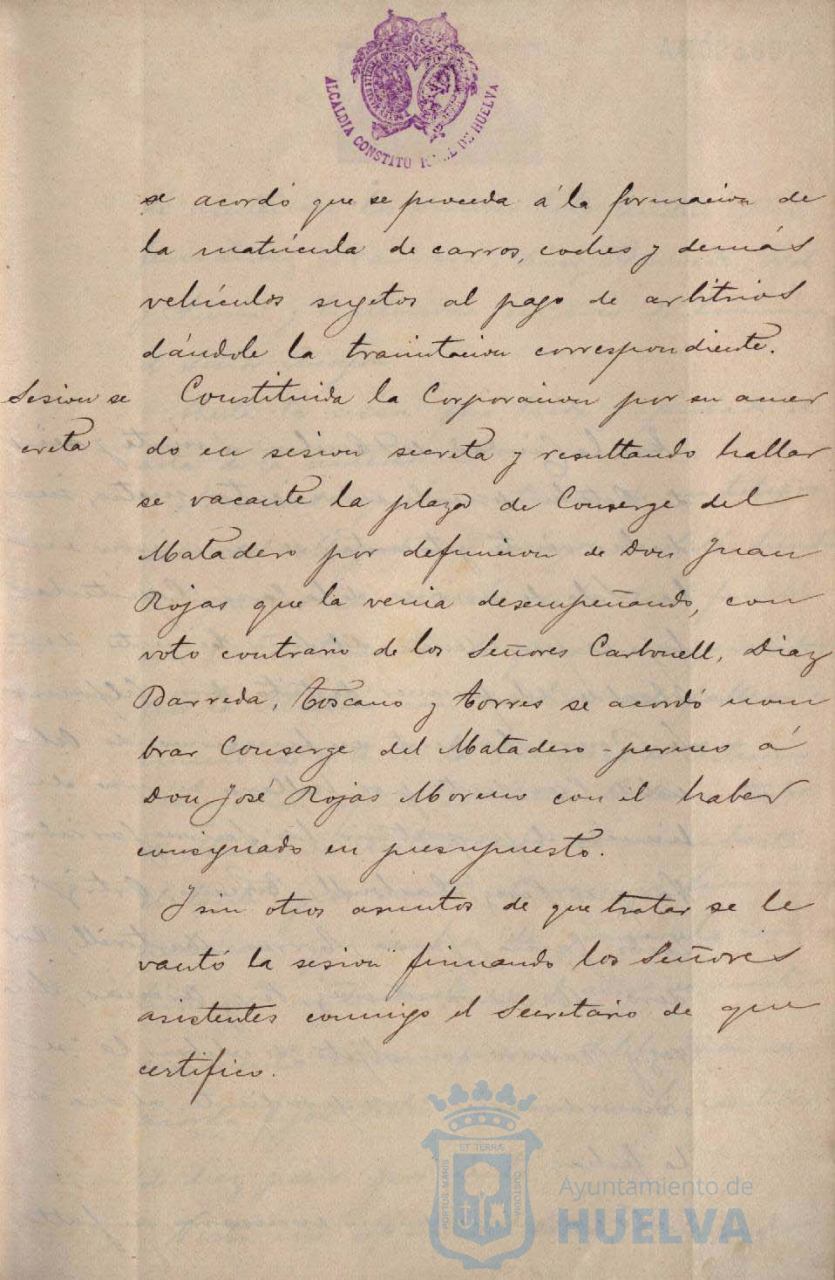 ALCALDIA CONSTITU DE HUELVA
se acordó que se proceda á la formacion de
la matricula de carros, coches y demás
vehículos sugetos al pago de arbitrios
dándole la tramitacion correspondiente.
Sesion se
creta
Constituida la Corporacion por su acuer
do en sesion secreta y resultando hallar
se vacante la plaza de Conserge del
Matadero por defuncion de Don Juan
Rojas que la venia desempeñando, con
voto contrario de los Señores Carbonell, Diaz
Barreda, Toscano y Torres se acordó nom
brar Conserge del Matadero á
Don José Rojas Moreno con el haber
consignado en presupuesto.
Y sin otros asuntos de que tratar se le
vantó la sesion firmando los Señores
asistentes conmigo el Secretario de que
certifico.
PORTUS MARIS
ET TERRÆ
CUSTODIA
Ayuntamiento de
HUELVA